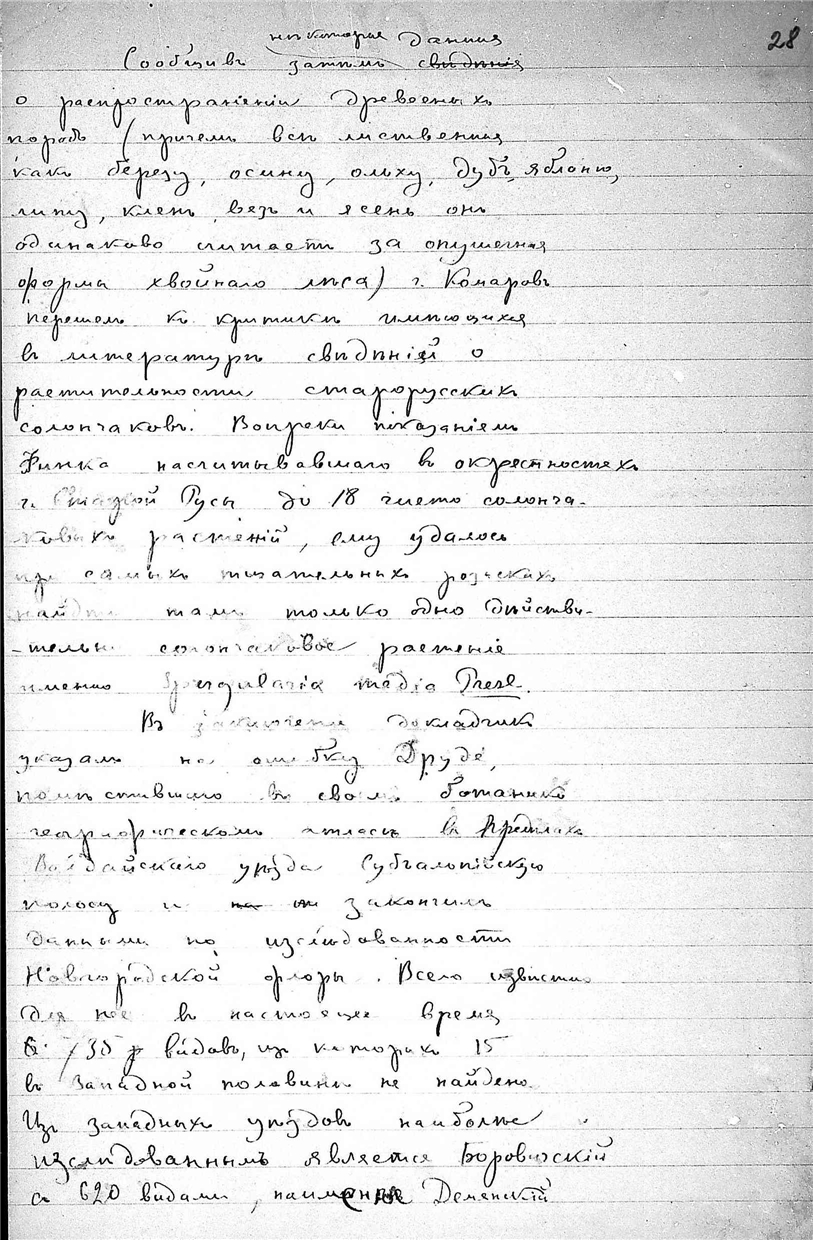 28
некоторыя данныя
Сообщивъ затѣмъ свѣдѣнія
о распространеніи древесныхъ
породъ (причемъ всѣ лиственныя
какъ березу, осину, ольху, дубъ, яблоню,
липу, кленъ, вязъ и ясень онъ
одинаково считаетъ за опушечныя
формы хвойнаго лѣса) г. Комаровъ
перешелъ къ критикѣ имѣющихся
въ литературѣ свѣдѣній о
растительности старорусскихъ
солончаковъ. Вопреки показаніямъ
Финка насчитывавшаго въ окрестностяхъ
г. Старой Русы до 18 чисто солонча-
ковыхъ растеній, ему удалось
при самыхъ тщательныхъ розыскахъ
найти тамъ только одно дѣйстви-
-тельно солончаковое растеніе
именно Spergularia media Presl.
Въ заключеніи докладчикъ
указалъ на ошибку Друде,
помѣстившаго въ своемъ ботанико
географическомъ атласѣ въ предѣлахъ
Валдайскаго уѣзда Субъальпійскую
полосу и закончилъ
данными по изслѣдованности
Новгородской флоры. Всего извѣстно
для нее въ настоящее время
735 видовъ, изъ которыхъ 15
въ Западной половинѣ не найдено.
Изъ западныхъ уѣздовъ наиболѣе
изслѣдованнымъ является Боровичскій
съ 620 видами, наименѣе Демянскій